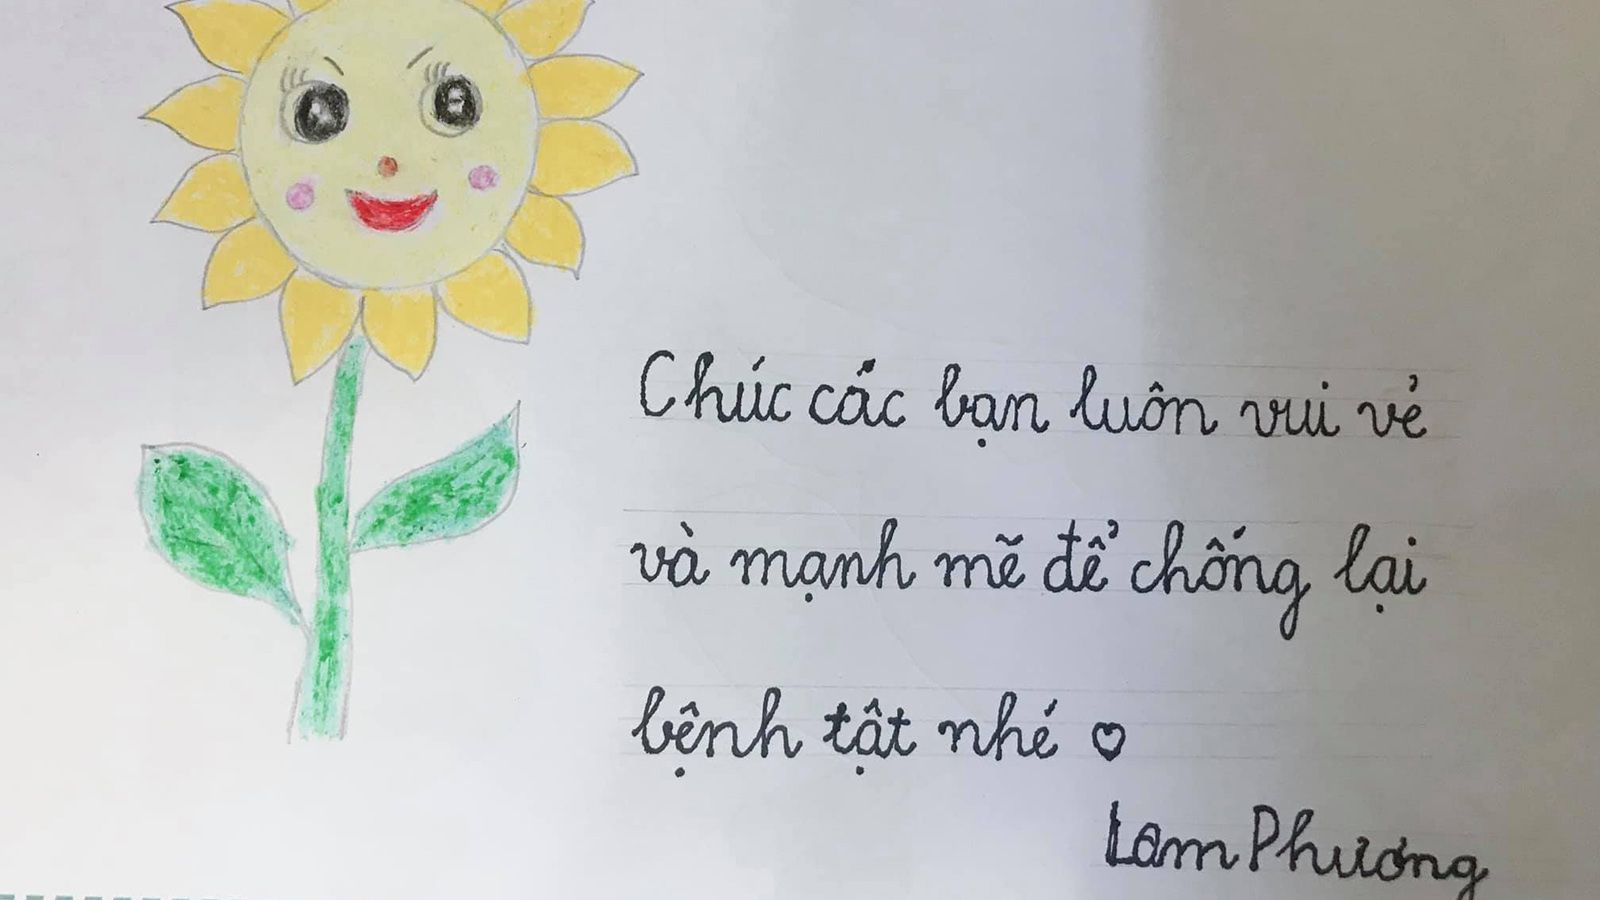 Chúc các bạn luôn vui vẻ
và mạnh mẽ để chống lại
bệnh tật nhé ♡
Lam Phương